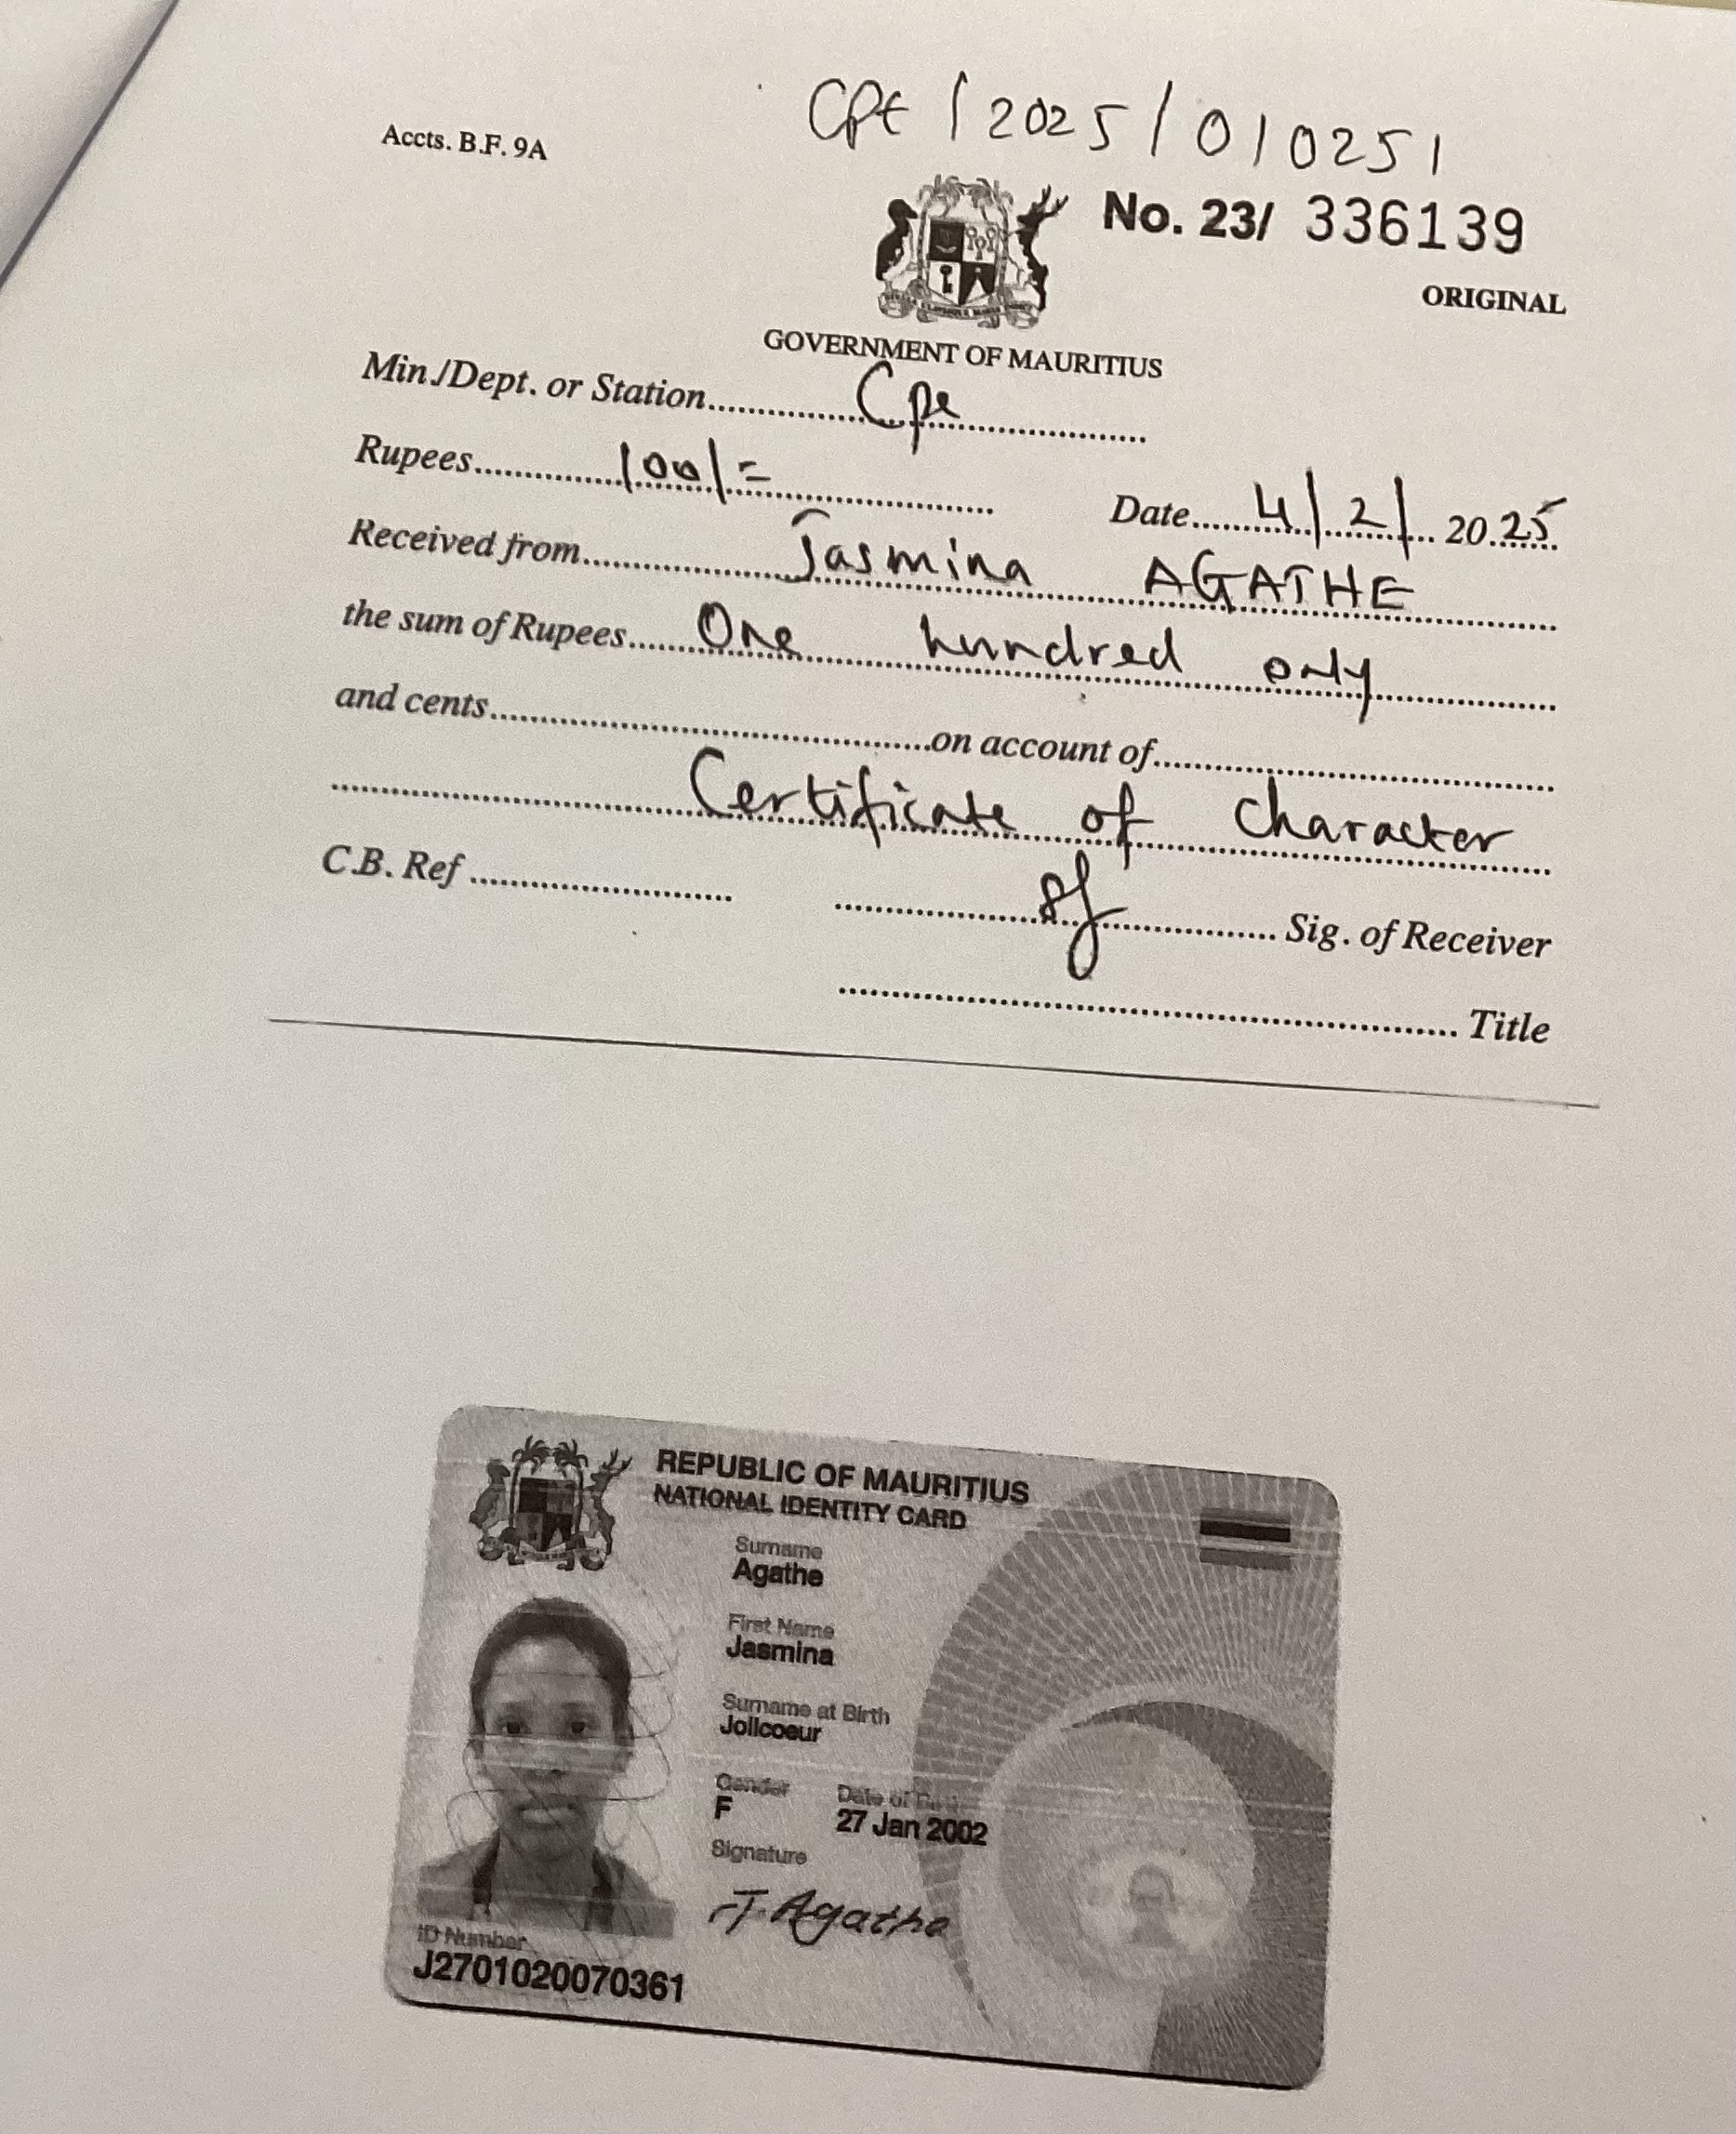 Cpt / 2025 / 010251
Accts. B.F. 9A
No. 23/ 336139
ORIGINAL
GOVERNMENT OF MAURITIUS
Min./Dept. or Station..........Cpe..........
Rupees..........100/=..........
Date.....4/2/ 20.25
Received from..........Jasmina AGATHE
the sum of Rupees.....One hundred only
and cents....................on account of....................
Certificate of character
C.B. Ref ....................
.................... Sig. of Receiver
.................... Title
REPUBLIC OF MAURITIUS
NATIONAL IDENTITY CARD
Surname
Agathe
First Name
Jasmina
Surname at Birth
Jolicoeur
Gender Date of Birth
F 27 Jan 2002
Signature
J. Agathe
ID Number
J2701020070361